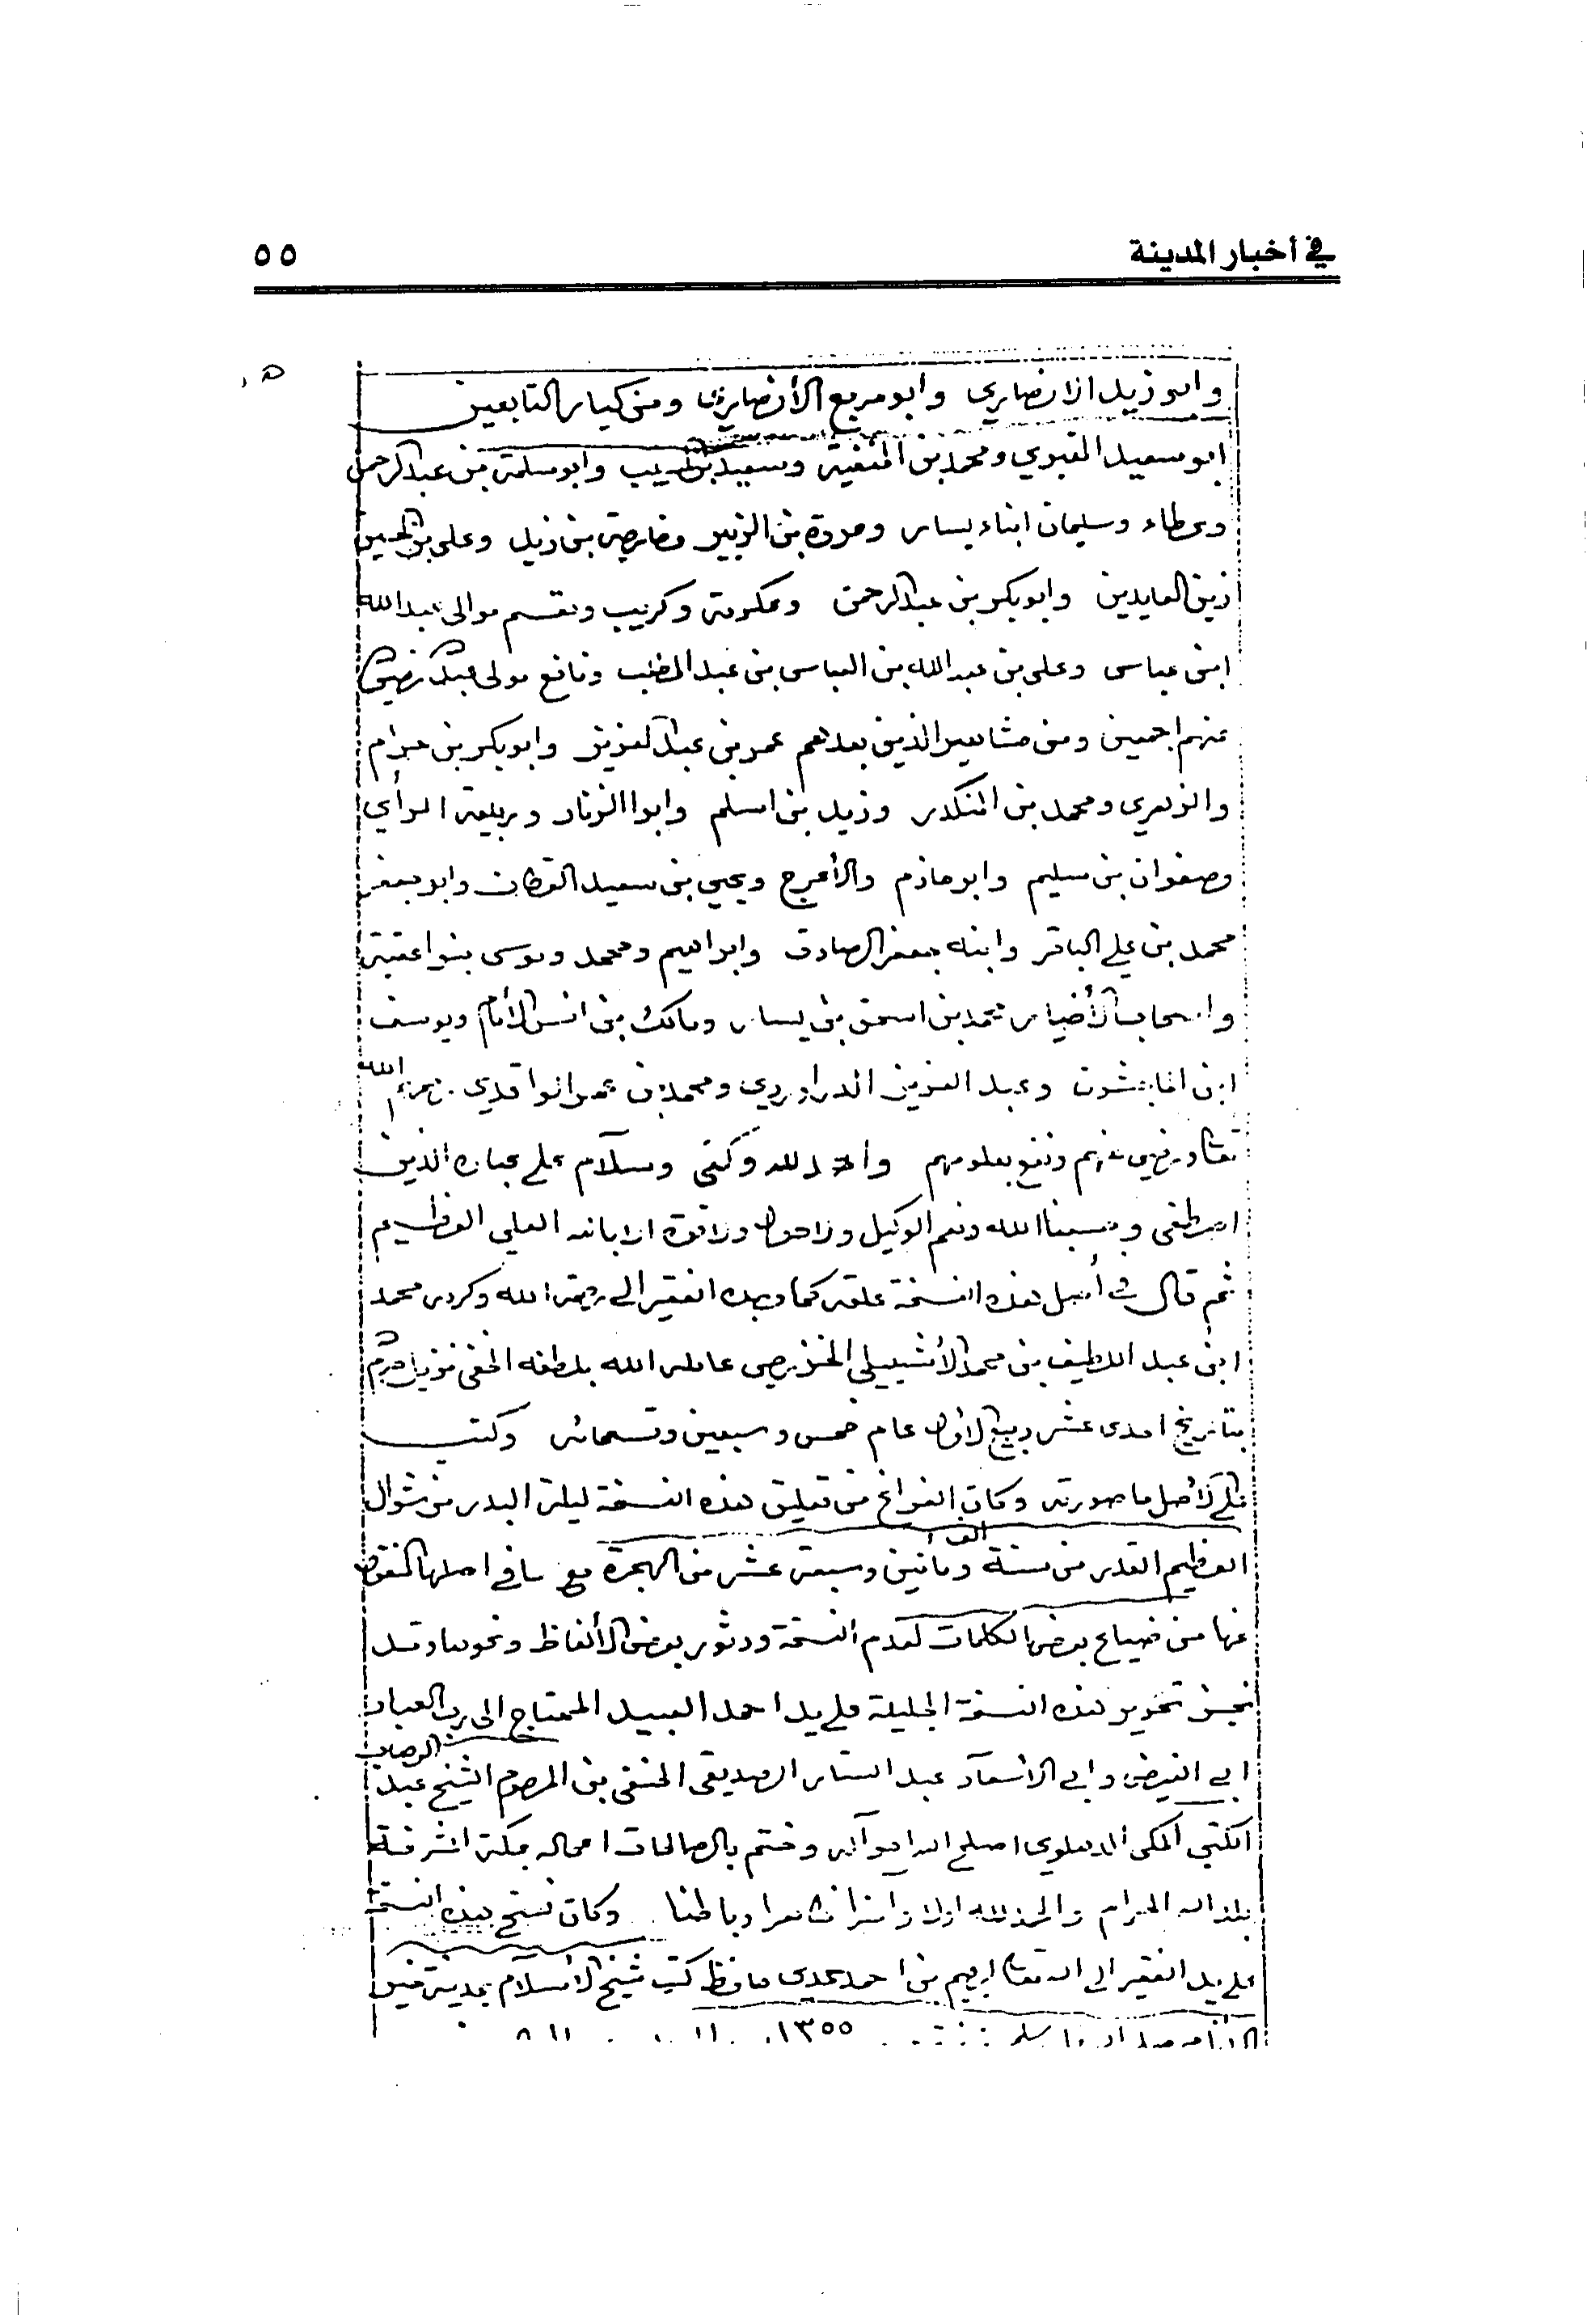 في أخبار المدينة
٥٥
وابو زيد الانصاري وابو مربع الأنصاري ومن كبار التابعين
ابو سعيد المقبري ومحمد بن الحنفية وسعيد بن المسيب وابو سلمة بن عبد الرحمن
وعطاء وسليمان ابناء يسار وعروة بن الزبير وخارجة بن زيد وعلي بن الحسين
زين العابدين وابو بكر بن عبد الرحمن وعكرمة وكريب ومقسم موالى عبد الله
ابن عباس وعلى بن عبد الله بن العباس بن عبد المطلب ونافع مولى
عنهم اجمعين ومن مشاهير الذين بعدهم عمر بن عبد العزيز وابو بكر بن حزام
والزهري ومحمد بن المنكدر وزيد بن اسلم وابوا الزناد وربيعة الرأي
وصفوان بن سليم وابو حازم والأعرج ويحيي بن سعيد القطان وابو جعفر
محمد بن علي الباقر وابنه جعفر الصادق وابراهيم ومحمد وموسى بنوا عقبة
واصحاب الأخبار محمد بن اسحق بن يسار ومالك بن انس الأمام ويوسف
ابن الماجشون وعبد العزيز الدراوردي ومحمد بن عمر الواقدي رحمهم الله
تعالى ورضي عنهم ونفع بعلومهم والحمد لله وكفى وسلام على عباده الذين
اصطفى وحسبنا الله ونعم الوكيل ولا حول ولا قوة الا بالله العلي العظيم
ثم قال في أصل هذه النسخة علقه كما وجده الفقير الى رحمة الله وكرمه محمد
ابن عبد اللطيف بن محمد الأشبيلي الخزرجي عامله الله بلطفه الخفي
بتاريخ احدى عشر ربيع الأول عام خمس وسبعين وتسعمائه وكتب
على الأصل ما صورته وكان الفراغ من تعليق هذه النسخة ليلة البدر من شوال
العظيم القدر من سنة الف ومائتين وسبعة عشر من الهجرة مع ما في اصلها المنقول
عنها من ضياع بعض الكلمات لقدم النسخة ودثور بعض الألفاظ ونحوها وقد
نجز تحرير هذه النسخة الجليلة على يد احمد العبيد المحتاج الى رب العباد
ابي الفيض وابي الاسعاد عبد الستار الصديقي الحنفي بن المرحوم الشيخ عبد الوهاب
الكتبي المكى الدهلوي اصلح الله احواله وختم بالصالحات اعماله بمكة المشرفة
بلد الله الحرام والحمد لله اولا وآخرا ظاهرا وباطنا وكان نسخ هذه النسخة
على يد الفقير الى الله تعالى ابراهيم بن احمد حمدي حافظ كتب شيخ الأسلام بمدينة خير
الأنام ١٣٥٥